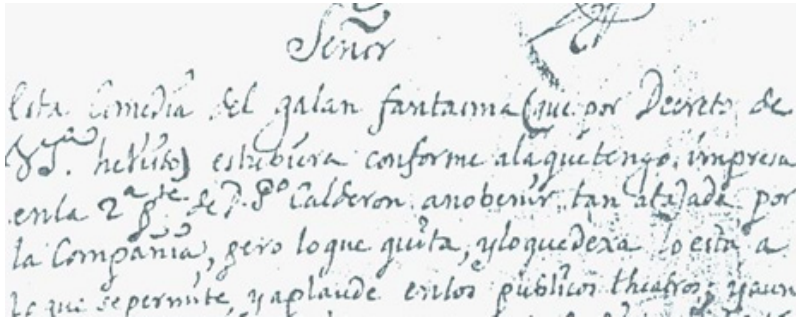 Señor
Esta Comedia del galan fantasma (que por Decreto de
V.S.ª he visto) estubiera conforme ala que tengo impresa
enla 2ª pte de D. Pº Calderon, a no benir tan atajada por
la Compañia, pero lo que quita, y lo que dexa lo esta a
lo que se permite, y aplaude enlos publicos theatros; y aun